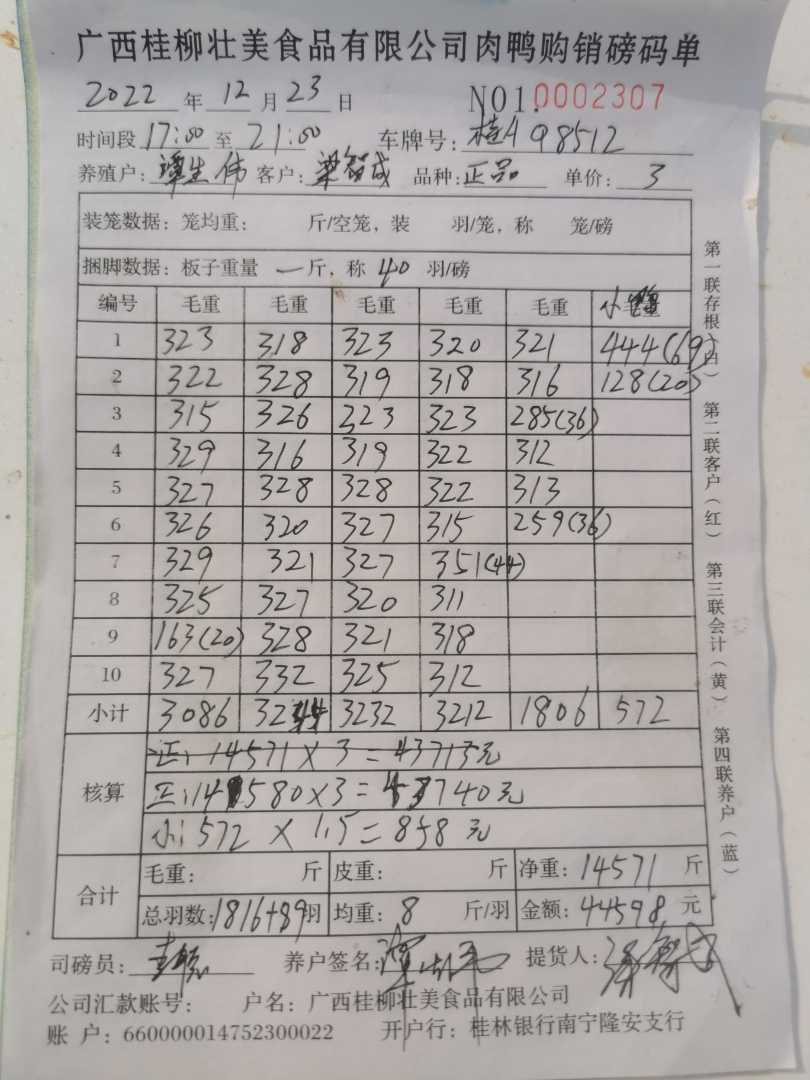 广西桂柳壮美食品有限公司肉鸭购销磅码单
2022 年 12 月 23 日 NO1.0002307
时间段 17:00 至 21:00 车牌号: 桂A 98512
养殖户: 谭生伟 客户: 梁智成 品种: 正品 单价: 3
装笼数据: 笼均重: 斤/空笼, 装 羽/笼, 称 笼/磅
捆脚数据: 板子重量 一斤, 称 40 羽/磅
编号 毛重 毛重 毛重 毛重 毛重 小
1 323 318 323 320 321 444(69)
2 322 328 319 318 316 128(20)
3 315 326 223 323 285(36)
4 329 316 319 322 312
5 327 328 328 322 313
6 326 320 327 315 259(36)
7 329 321 327 351(44)
8 325 327 320 311
9 163(20) 328 321 318
10 327 332 325 312
小计 3086 3244 3232 3212 1806 572
核算 正: 14571 × 3 = 43713元
正: 14580 × 3 = 43740元
小: 572 × 1.5 = 858 元
合计 毛重: 斤 皮重: 斤 净重: 14571 斤
总羽数: 1816+89羽 均重: 8 斤/羽 金额: 44598 元
司磅员: 养户签名: 提货人:
公司汇款账号: 户名: 广西桂柳壮美食品有限公司
账 户: 660000014752300022 开户行: 桂林银行南宁隆安支行
第一联存根(白) 第二联客户(红) 第三联会计(黄) 第四联养户(蓝)